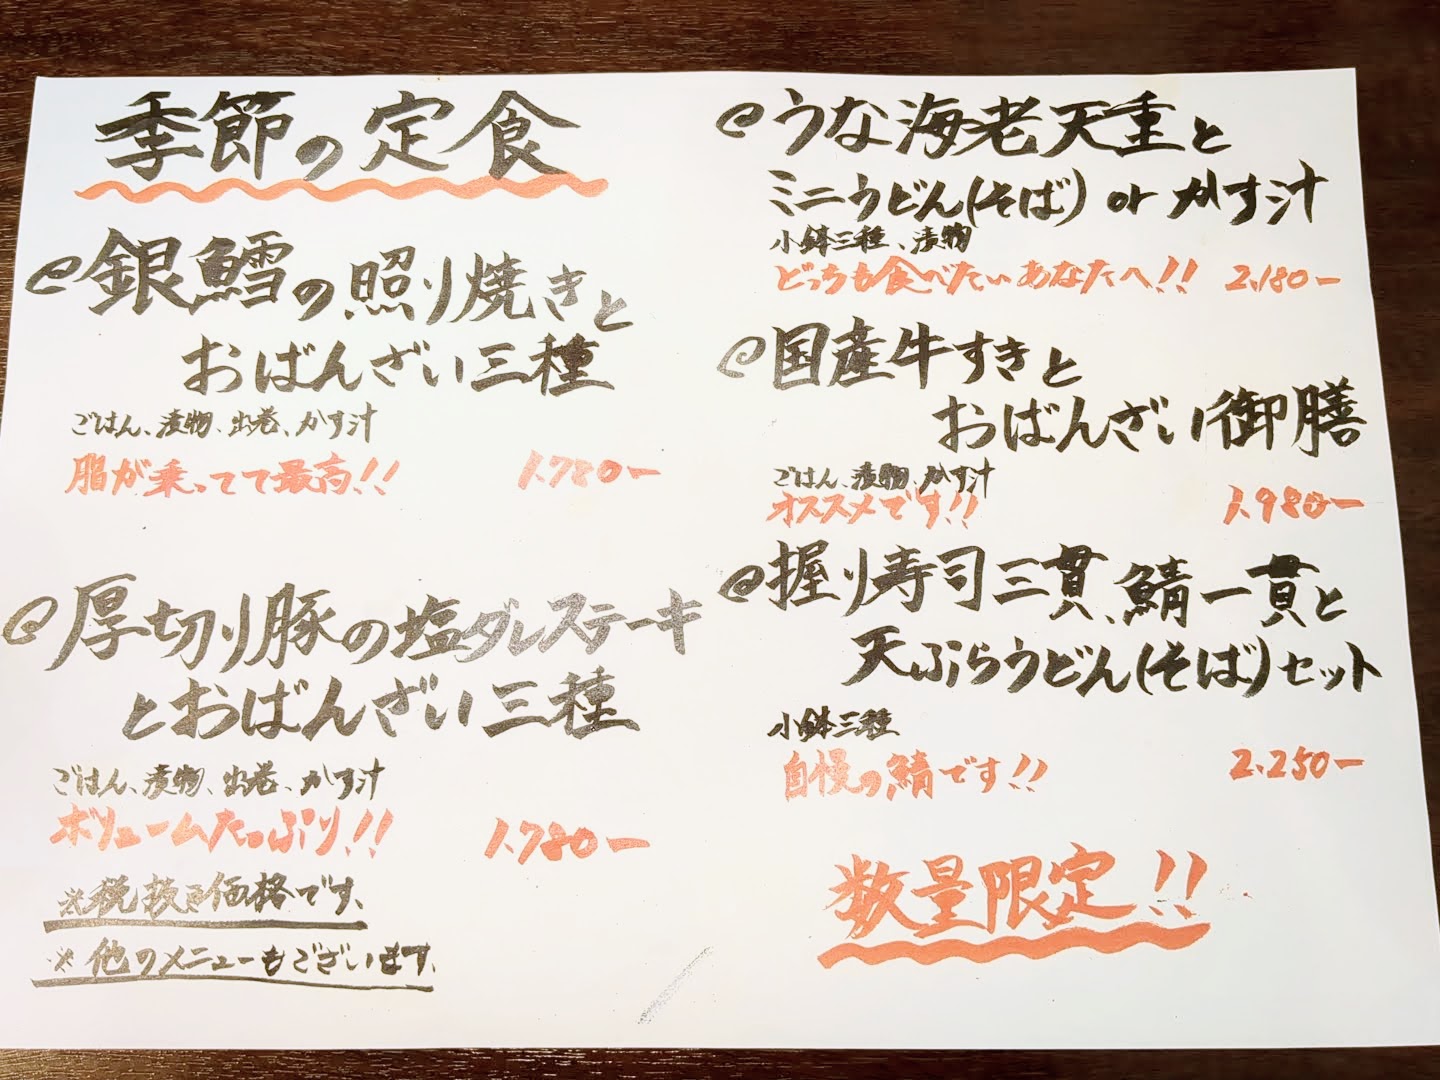 季節の定食
銀鱈の照り焼きと
おばんざい三種
ごはん、漬物、出巻、かす汁
脂が乗ってて最高!! 1.780ー
厚切り豚の塩ダレステーキ
とおばんざい三種
ごはん、漬物、出巻、かす汁
ボリュームたっぷり!! 1.780ー
※税抜き価格です。
※他のメニューもございます。
うな海老天重と
ミニうどん(そば) or かす汁
小鉢三種、漬物
どっちも食べたいあなたへ!! 2.180ー
国産牛すきと
おばんざい御膳
ごはん、漬物、かす汁
オススメです!! 1.980ー
握り寿司三貫、鯖一貫と
天ぷらうどん(そば)セット
小鉢三種
自慢の鯖です!! 2.250ー
数量限定!!